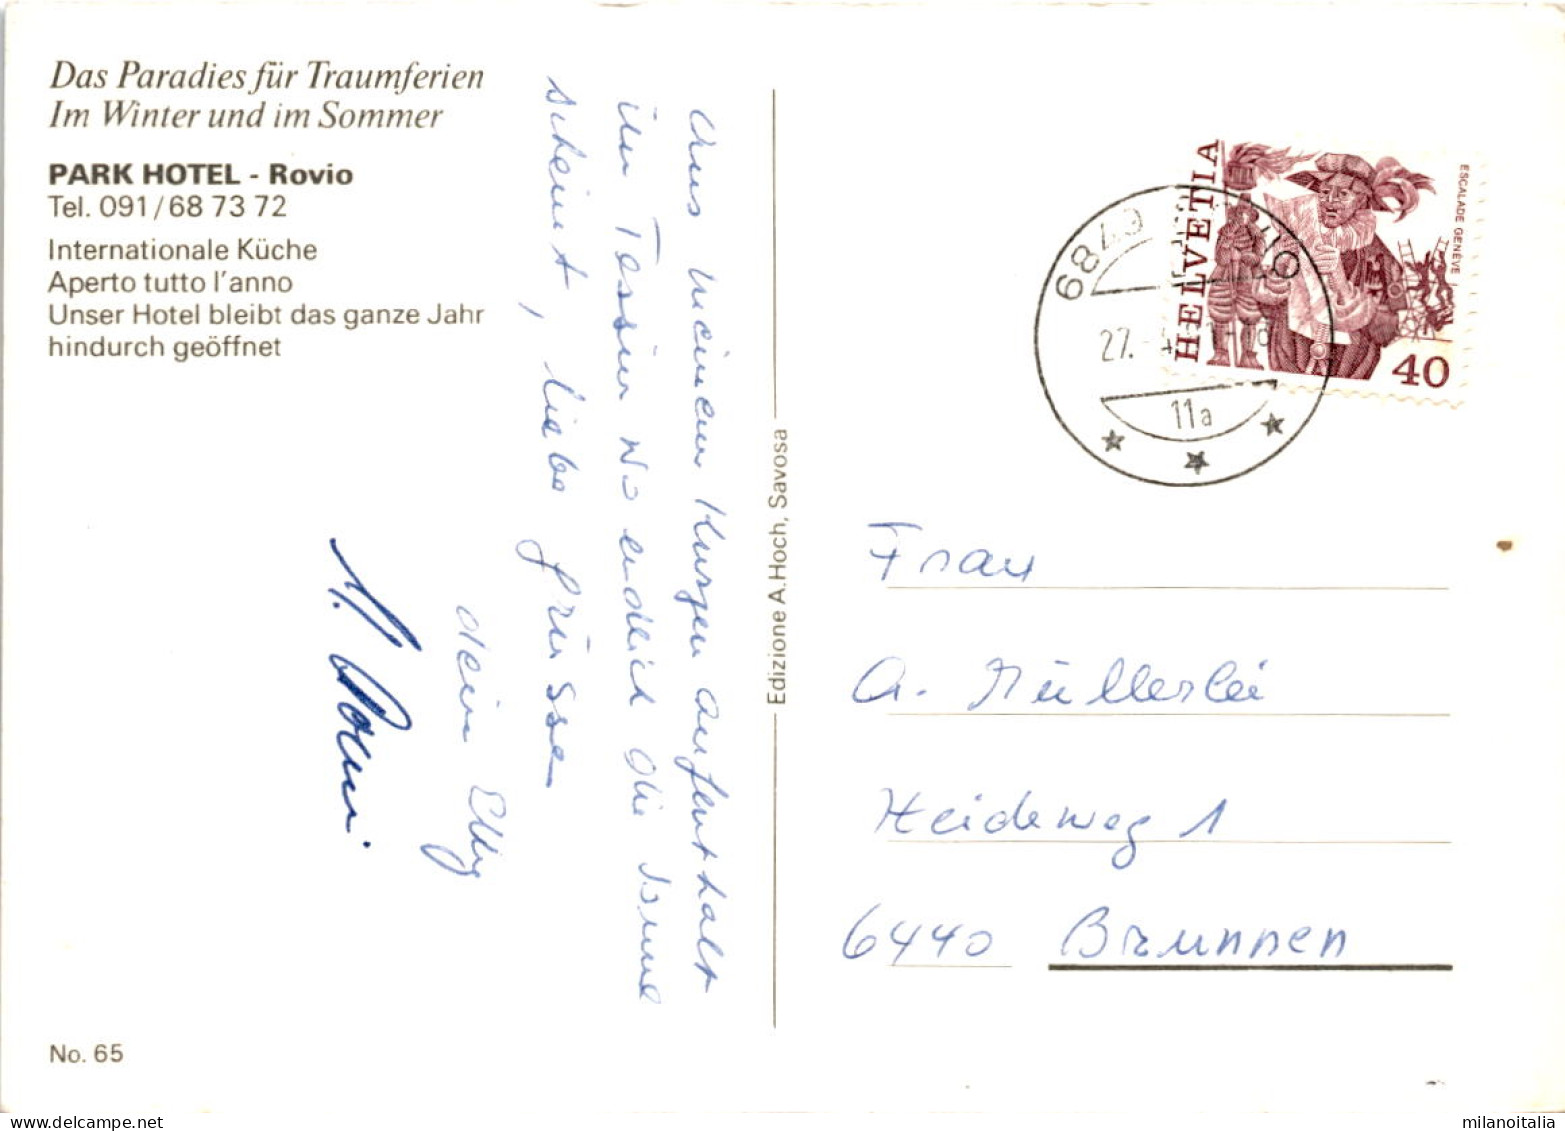 Das Paradies für Traumferien
Im Winter und im Sommer
PARK HOTEL - Rovio
Tel. 091/68 73 72
Internationale Küche
Aperto tutto l'anno
Unser Hotel bleibt das ganze Jahr
hindurch geöffnet
Aus meinem Kurzen aufenthalt
im Tessin wo endlich die Sonne
scheint, liebe grüsse
dein Elly
No. 65
Edizione A. Hoch, Savosa
HELVETIA
ESCALADE GENÈVE
40
6849 ROVIO
27.-4.
11a
Frau
A. Müllerlei
Heideweg 1
6440 Brunnen
milanoitalia